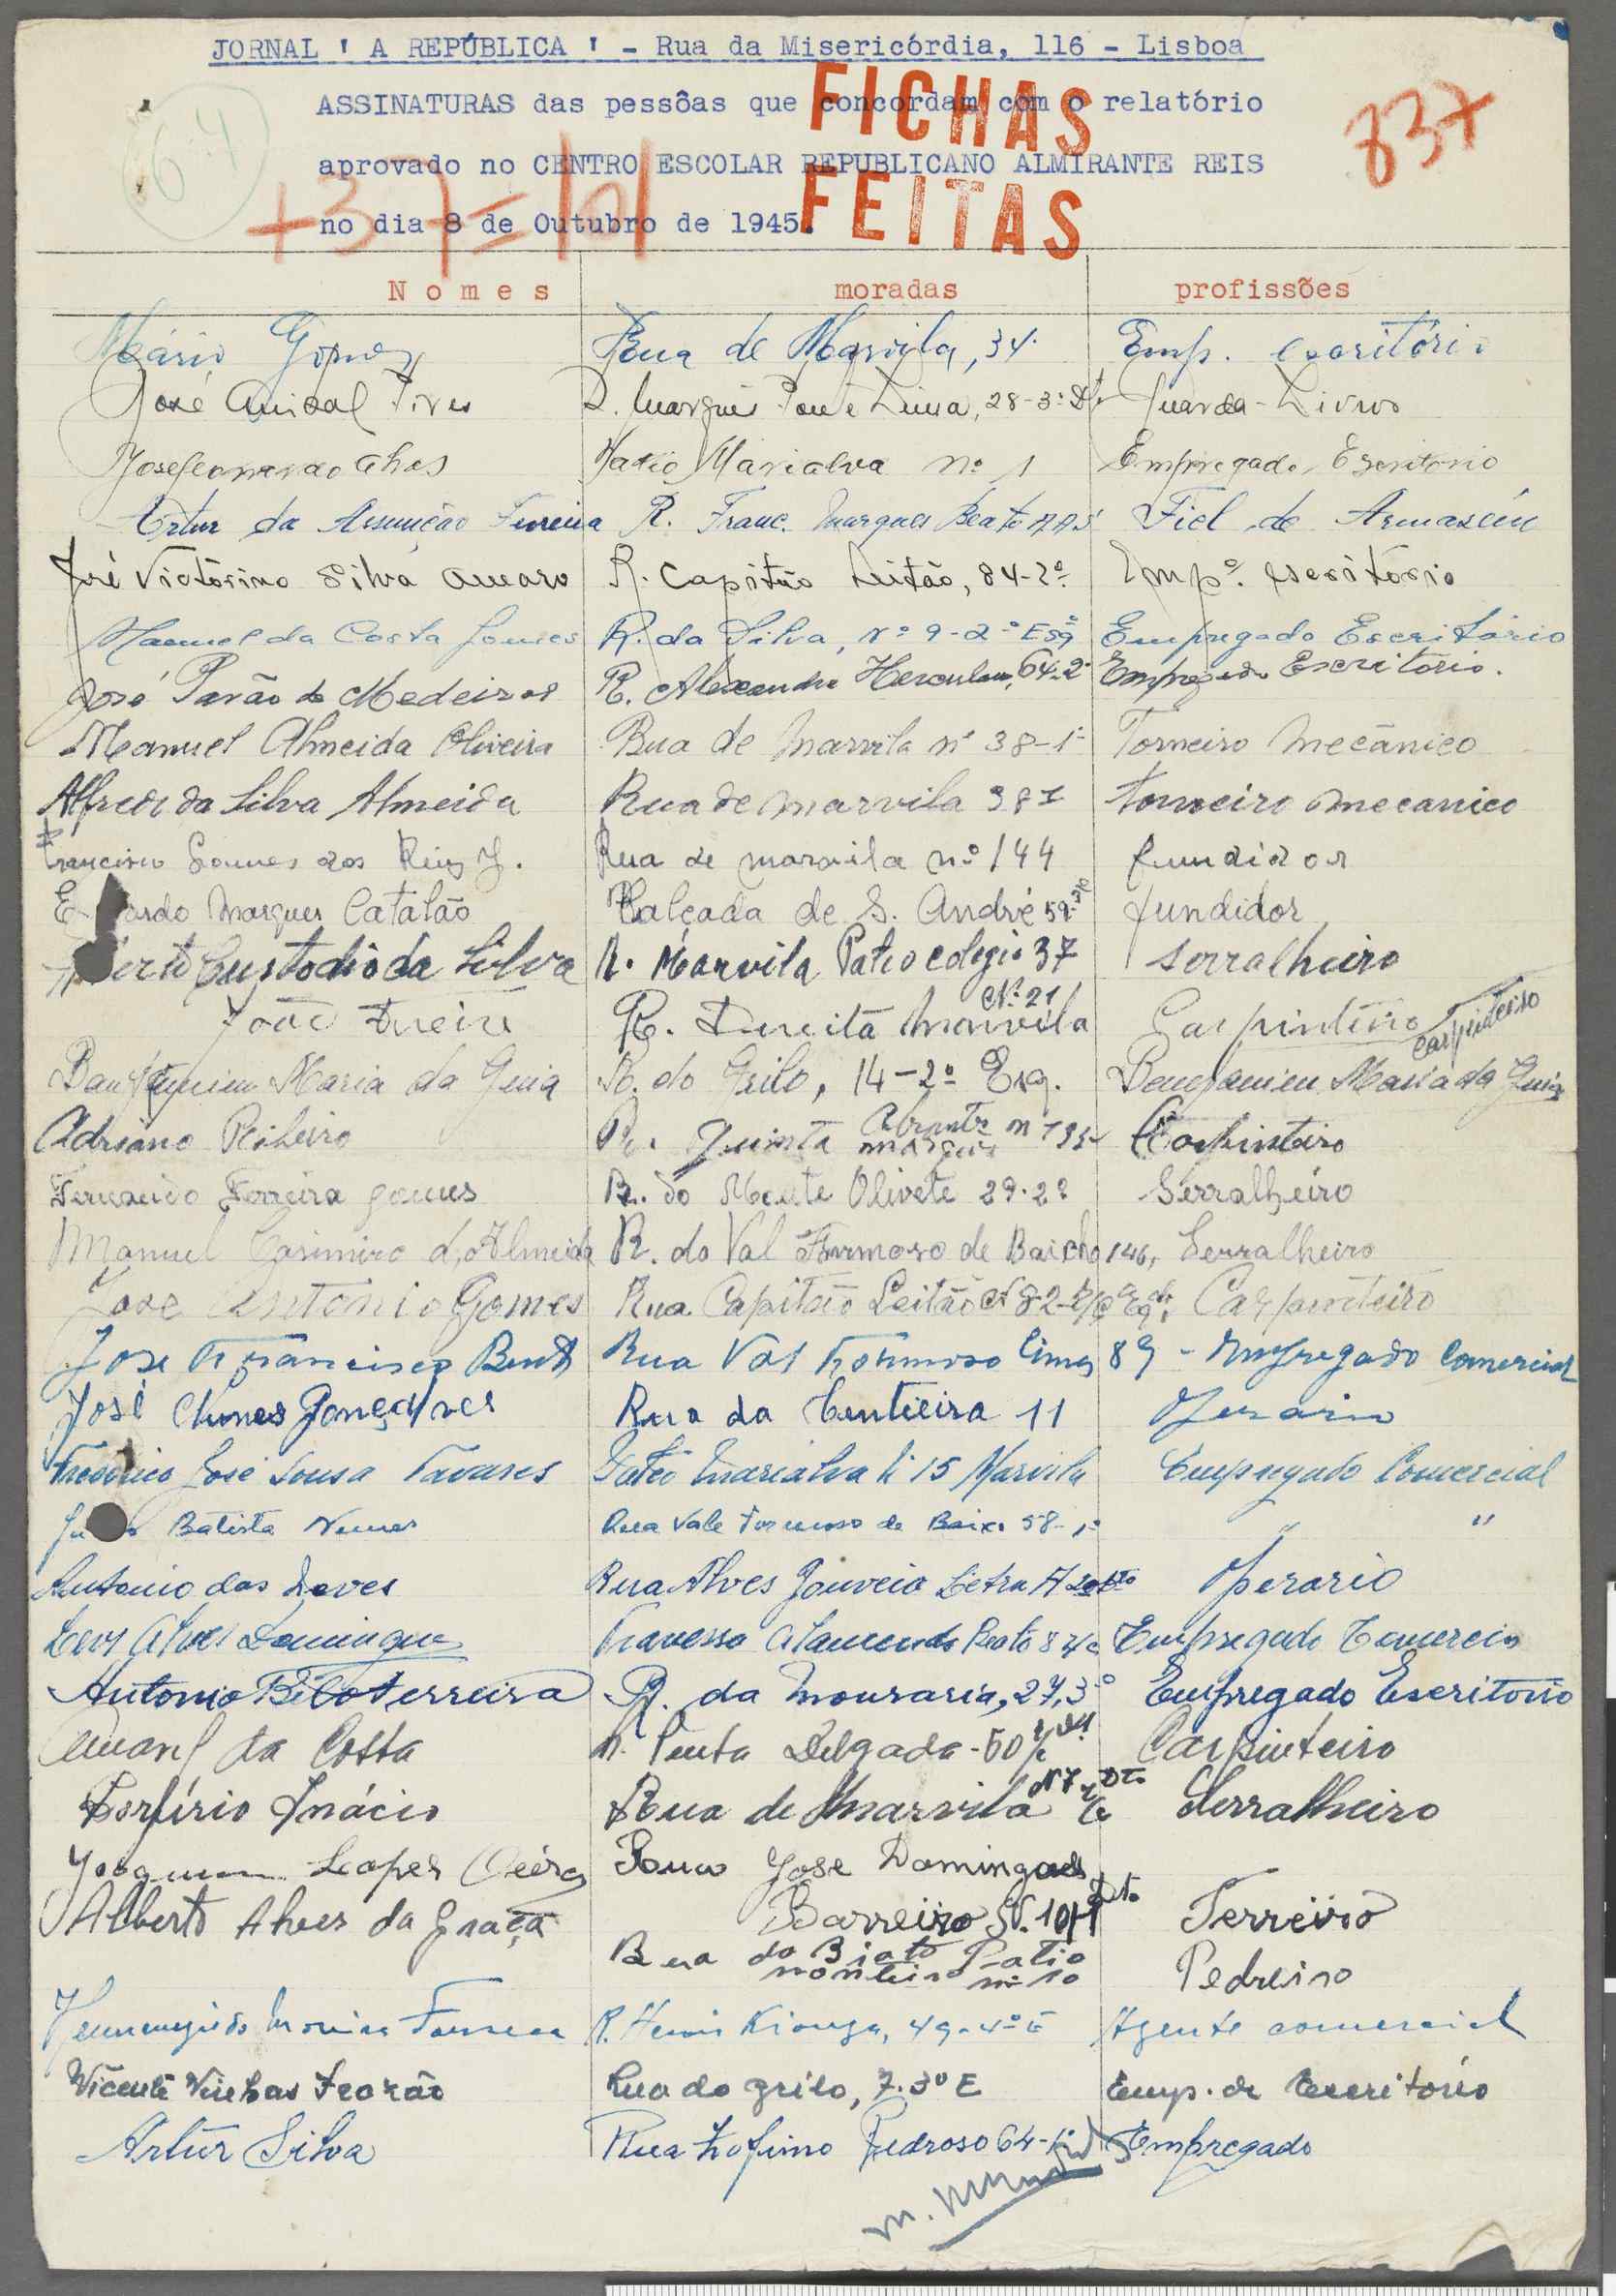 JORNAL ' A REPÚBLICA ' - Rua da Misericórdia, 116 - Lisboa
ASSINATURAS das pessôas que concordam com o relatório
aprovado no CENTRO ESCOLAR REPUBLICANO ALMIRANTE REIS
no dia 8 de Outubro de 1945.
FICHAS
FEITAS
837
64
+37=101
Nomes moradas profissões
Mário Gomes Rua de Marvila, 34 Emp. escritório
José Anibal Pires R. Marquês 28-3º Dtº Guarda-Livros
José Leonardo Alves Patio Marialva nº 1 Empregado Escritorio
Artur da Assunção Ferreira R. Franc. Marques Beato Fiel de Armazém
José Victórino Silva Amaro R. Capitão Leitão, 84-2º Empº. escritório
Manuel da Costa Gomes R. da Silva, nº 9-2º Esqº Empregado Escritório
José Pavão de Medeiros R. Alexandre Herculano, 64-2º Empregado Escritorio.
Manuel Almeida Oliveira Rua de Marvila nº 38-1º Torneiro Mecânico
Alfredo da Silva Almeida Rua de marvila 38 I torneiro mecanico
Francisco Gomes dos Reis J. Rua de marvila nº 144 fundidor
E ardo Marques Catalão Calçada de S. André 59 fundidor
Custodio da Silva R. Marvila Pateo colegio 37 Serralheiro
João Freire R. Direita Marvila Nº 21 Carpinteiro carpinteiro
Benjamim Maria da Guia R. do Grilo, 14-2º Esq. Benjamim Maria da Guia
Adriano Ribeiro R. Quinta marquês Abrantes n 135 Carpinteiro
Fernando Ferreira Gomes R. do Monte Olivete 29-2º Serralheiro
Manuel Casimiro d'Almeida R. do Val Formoso de Baicho 146, Serralheiro
José Antonio Gomes Rua Capitão Leitão Nº 82-r/c Eqº, Carpinteiro
José Francisco Bento Rua Val Formoso Cima 89 - Empregado Comercial
José Nunes Gonçalves Rua da Centieira 11 Operario
Frederico José Sousa Tavares Pateo Marialva Nº 15 Marvila Empregado Comercial
Batista Nunes Rua Vale Formoso de Baixo 58-1º " "
Antonio das Neves Rua Alves Gouveia Letra A Operario
Levy Alves Domingues Travessa Alameda Beato 8 r/c Empregado Comercio
Antonio Ferreira R. da Mouraria, 27, 3º Empregado Escritorio
da Costa R. Penta Delgada-50 Carpinteiro
Porfírio Inácio Rua de Marvila Nº 7 r/c Dto Serralheiro
Joaquim Lopes Rua José Domingues
Barreiro N. 10 Ferreiro
Alberto Alves da Graça Rua do Biato Patio
monteiro nº 10 Pedreiro
Hermenegildo Moreira Fonseca R. Herois Kionga, 49-4º E Agente comercial
Vicente Viegas Rua do grilo, 7-3º E Emp. de Escritório
Artur Silva Rua Zofimo Pedroso 64-1º Empregado